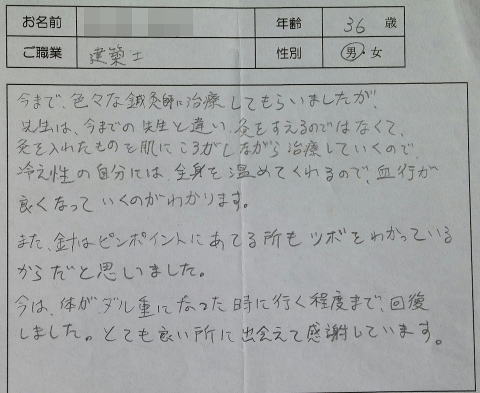 お名前 年齢 36 歳
ご職業 建築士 性別 男・女
今まで、色々な鍼灸師に治療してもらいましたが、
先生は、今までの先生と違い、灸をすえるのではなくて、
灸を入れたものを肌にころがしながら治療していくので、
冷え性の自分には、全身を温めてくれるので、血行が
良くなっていくのがわかります。
また、針はピンポイントにあてる所もツボをわかっている
からだと思いました。
今は、体がダル重になった時に行く程度まで、回復
しました。とても良い所に出会えて感謝しています。